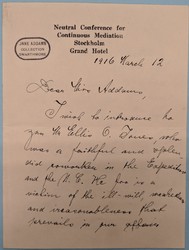 JANE ADDAMS
COLLECTION
SWARTHMORE
Neutral Conference for
Continuous Mediation
Stockholm
Grand Hotel
1916 March 12
Dear Miss Addams,
I wish to introduce to
you Mr Ellis O. Jones, who
was a faithful and splen
did coworker in the Expedition
and the N.C. He too is a
victim of the ill-will
and unreasonableness that
prevails in our offices